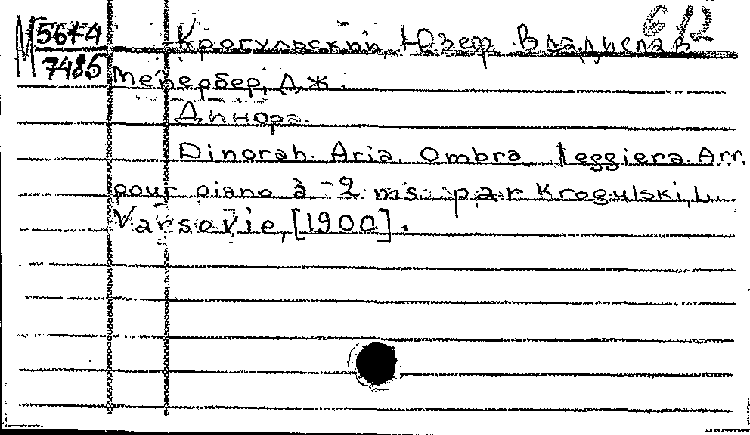 М 5674 Крогульский, Юзеф Владислав 612
7485 Мейербер, Дж.
Динора.
Dinorah. Aria. Ombra leggiera. Arr.
pour piano à 2 ms. par Krogulski, L.
Varsovie, [1900].